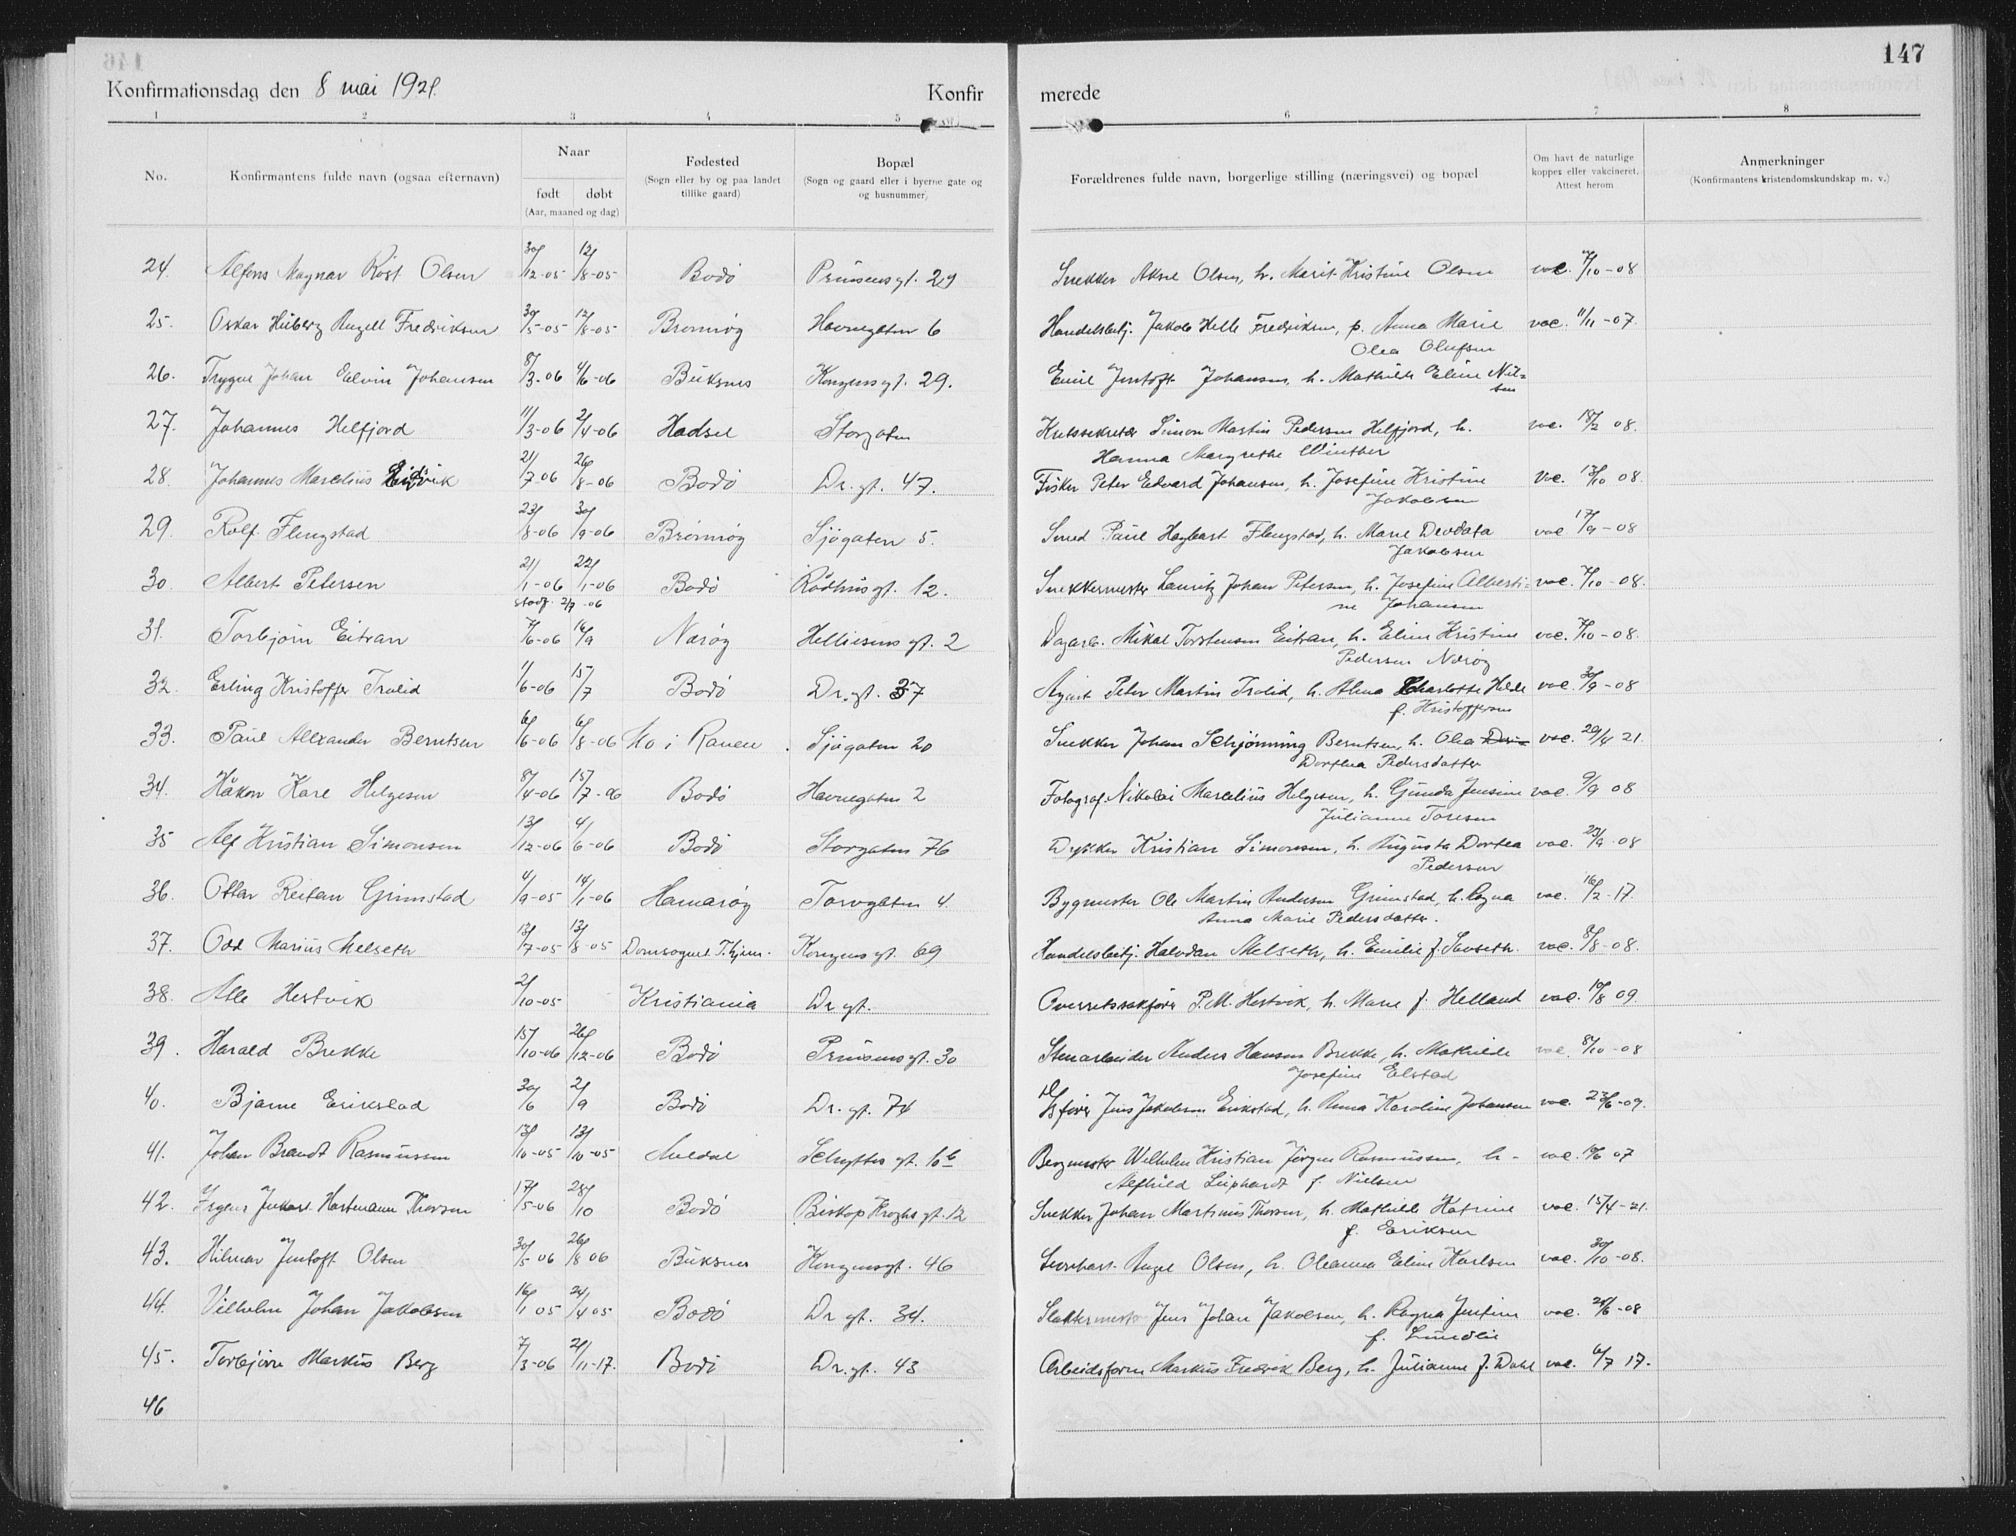 147
Konfirmationsdag den 8 mai 1921.
Konfir
merede
1 2 3 4 5 6 7 8
No.
Konfirmantens fulde navn (ogsaa efternavn)
Naar
født døbt
(Aar, maaned og dag)
Fødested
(Sogn eller by og paa landet
tillike gaard)
Bopæl
(Sogn og gaard eller i byerne gate og
og husnummer)
Forældrenes fulde navn, borgerlige stilling (næringsvei) og bopæl
Om havt de naturlige
kopper eller vakcineret.
Attest herom
Anmerkninger
(Konfirmantens kristendomskundskap m. v.)
24. Alfons Magnar Røst Olsen 30/12-05 12/8-05 Bodö Prinsensgt. 29 Snekker Aksel Olsen, h. Marit Kristine Olsen vac. 7/10-08
25. Oskar Huberg Angell Fredriksen 30/5-05 12/8-05 Brønnøy Havnegaten 6 Handelsbetj. Jakob Helle Fredriksen, p. Anna Marie vac. 11/11-07.
Olea Olufsen
26. Trygve Johan Edvin Johansen 8/3-06 4/6-06 Buksnes Kongensgt. 29. Emil Jentoft Johansen, h. Mathilde Eline Nil=
sen
27. Johannes Helfjord 11/3-06 2/4-06 Hadsel Storgaten Kretssekretær Simon Martin Pedersen Helfjord, h. vac. 18/2 08.
Hanna Margrethe Winther
28. Johannes Marelius Eidvik 21/7-06 26/8-06 Bodö Dr. gt. 47. Fisker Peter Edvard Johansen, h. Josefine Kristine Vac. 13/10 08.
Jakobsen
29. Rolf Flengstad 23/8-06 30/9-06 Brönnöy Sjøgaten 5. Smed Paul Hagbart Flengstad, h. Marie Deodata vac 17/9-08
Jakobsen
30. Albert Petersen 21/1-06 22/1-06 Bodö Rådhusgt. 12. Snekkermester Lauritz Johan Petersen, h. Josefine Alberti= vac. 7/10-08.
stadf. 2/7-06
ne Johansen
31. Torbjørn Eitran 7/6-06 16/9 Nærøy Helliesens gt. 2 Dagarb. Mikal Torstensen Eitran, h. Eline Kristine vac. 7/10-08.
Pedersen Nærøy
32. Erling Kristoffer Trolid 1/6-06 15/7 Bodö Dr. gt. 37 Agent Peter Martin Trolid, h. Alma Charlotte Helde vac. 30/9-08
f. Kristoffersen
33. Paul Alexander Berntsen 6/6-06 6/8-06 Mo i Ranen Sjøgaten 20 Snekker Johan Schjønning Berntsen, h. Olea vac. 29/4 21.
Dorthea Pedersdatter
34. Håkon Kare Helgesen 8/4-06 15/7-06 Bodö Havnegaten 2 Fotograf. Nikolai Marelius Helgesen, h. Gunda Jensine vac. 9/9 08
Julianne Toresen
35 Alf Kristian Simonsen 13/12-06 4/6-06 Bodö Storgaten 76 Kristian Simonsen, h. Augusta Dortea vac. 23/9-08
Pedersen
36. Ottar Reitan Grimstad 4/9-05 14/1-06 Hamarøy Torvgaten 4 Bygmester Ole Martin Andersen Grimstad, h. Ragna vac. 16/2-17.
Anna Marie Pedersdatter.
37. Odd Marius Melseth 13/7-05 13/8-05 Domsognet T.hjem. Kongens gt. 69 Handelsbetj. Halvdan Melseth, h. Emilie f. Savseth. vac. 8/8-08.
38. Atle Hestvik 2/10-05 Kristiania Dr gt. Overretssakfører P.M. Hestvik, h. Marie f. Helland vac. 10/8 09
39. Harald Brekke 15/10-06 26/12-06 Bodö Prinsensgt. 30 Stenarbeider Anders Hansen Brekke, h. Mathilde vac. 8/10-08
Josefine Elstad
40. Bjarne Erikstad 30/6 2/9 Bodö Dr. gt. 74 Jens Jakobsen Erikstad, h. Anna Karoline Johansen vac. 23/6-09.
41. Johan Brandt Rasmussen 13/10-05 13/10-05 Meldal Schyttes gt. 10 b Bergmester Wilhelm Kristian Jørgen Rasmussen, h- vac. 10/6 07
Alfhild Liphardt f. Nielsen
42. Hartmann Thorsen 17/5-06 28/10 Bodö Biskop Kroghs gt. 12 Snekker Johan Martinus Thorsen, h. Mathilde Katrine vac. 15/4-21.
f. Eriksen
43. Hilmar Jentoft Olsen 30/5 06 26/8 06 Buksnes Kongensgt. 46 Angel Olsen, h. Oleanna Eline Karlsen vac. 30/10-08.
44. Vilhelm Johan Jakobsen 16/1 05 24/4 05 Bodö Dr gt. 34. Slaktermester Jens Johan Jakobsen, h. Ragna Jentine vac. 24/6-08
f. Lundlie
45. Torbjørn Markus Berg 7/3-06 21/11-17. Bodö Dr. gt. 43 Arbeidsform Markus Fredrik Berg, h. Julianne f. Dahl vac. 6/7 17.
46